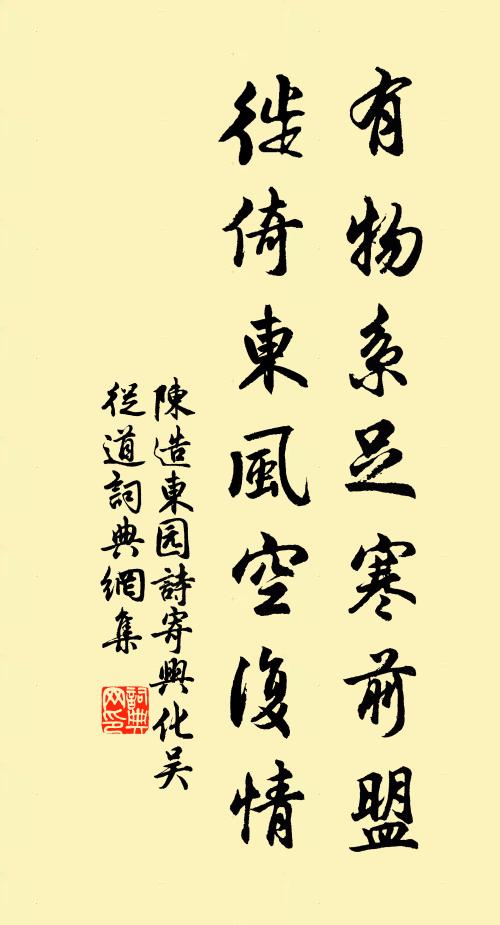 有物系足寒前盟
徙倚東風空復情
陳造東园詩寄興化吴
從道詞典網集
詞典
网印